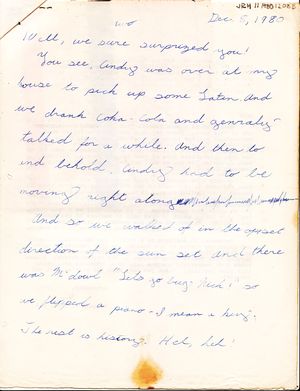 Dec. 5, 1980
Well, we sure surprized you!
You see, Andy was over at my
house to pick up some Laten. And
we drank Coka-Cola and genraly
talked for a while. And then lo
ind behold. Andy had to be
moving right along
And so we walked of in the opset
direction of the sun set. And there
was McDowl "Lets go bug Rich!" so
we fliped a piano - I mean a bug.
The rest is history. Heh, heh!